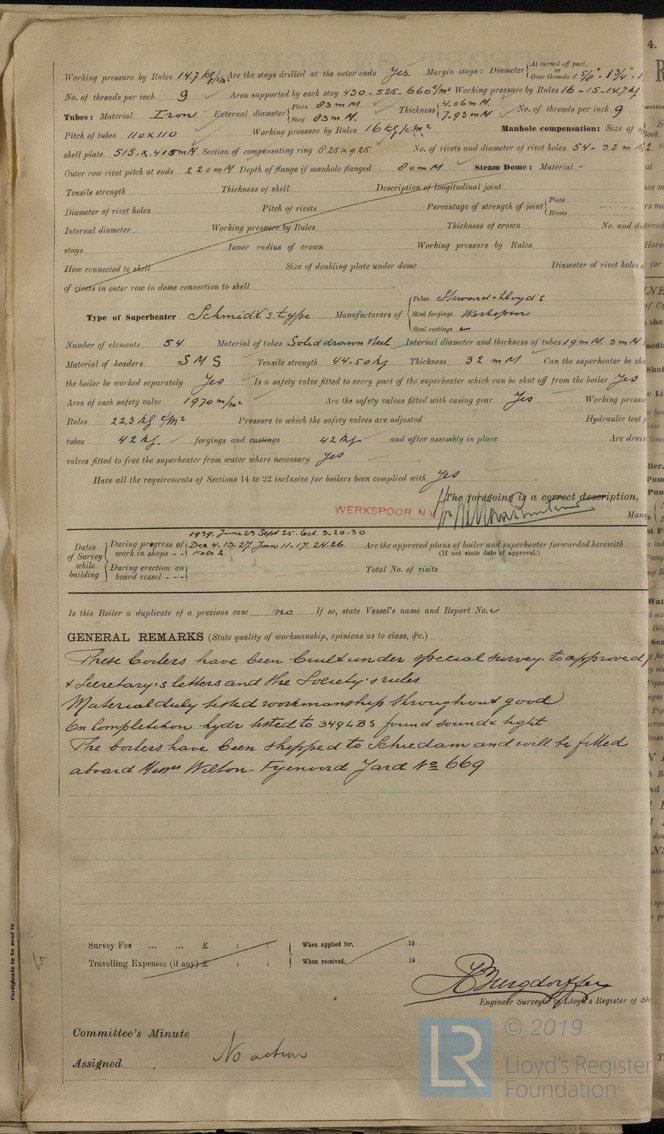 Working pressure by Rules 14.7 kg/c/m² Are the stays drilled at the outer ends Yes Margin stays: Diameter { At turned off part, or Over threads 1 5/8" - 1 3/4" -
No. of threads per inch 9 Area supported by each stay 430-525-660 c/m² Working pressure by Rules 16-15-14.7 kg
Tubes: Material Iron External diameter { Plain 83 mM Stay 83 mM. Thickness { 4.06 mM. 7.93 mM. No. of threads per inch 9
Pitch of tubes 110 x 110 Working pressure by Rules 16 kg/c.m² Manhole compensation: Size of
shell plate 515 x 415 mM Section of compensating ring 825 x 925 No. of rivets and diameter of rivet holes 54 - 32 m
Outer row rivet pitch at ends 220 mM Depth of flange if manhole flanged 80 mM Steam Dome: Material -
Tensile strength Thickness of shell Description of longitudinal joint
Diameter of rivet holes Pitch of rivets Percentage of strength of joint { Plate Rivets
Internal diameter Working pressure by Rules Thickness of crown No. and
stays Inner radius of crown Working pressure by Rules
How connected to shell Size of doubling plate under dome Diameter of rivet holes
of rivets in outer row in dome connection to shell
Type of Superheater Schmidt's type Manufacturers of { Tubes Steward & Lloyd's Steel forgings Werkspoor Steel castings
Number of elements 54 Material of tubes Solid drawn steel Internal diameter and thickness of tubes 19 mM 3 mM.
Material of headers S M S Tensile strength 44-50 kg Thickness 32 mM Can the superheater be
the boiler be worked separately Yes Is a safety valve fitted to every part of the superheater which can be shut off from the boiler Yes
Area of each safety valve 1970 m/m² Are the safety valves fitted with easing gear Yes Working
Rules 22.3 kg c/m² Pressure to which the safety valves are adjusted Hydraulic test
tubes 42 kg. forgings and castings 42 kg and after assembly in place Are
valves fitted to free the superheater from water where necessary Yes
Have all the requirements of Sections 14 to 22 inclusive for boilers been complied with Yes
The foregoing is a correct description,
WERKSPOOR N.V.
Dates of Survey while building { During progress of work in shops - - 1939. June 23 Sept 25. Oct. 3. 20-30 Dec 4. 13. 27. Jan 11-17. 24. 26. Febr 2 Are the approved plans of boiler and superheater forwarded herewith (If not state date of approval.)
During erection on board vessel - - - Total No. of visits
Is this Boiler a duplicate of a previous case no If so, state Vessel's name and Report No.
GENERAL REMARKS (State quality of workmanship, opinions as to class, &c.)
These boilers have been built under special survey to approved
& Secretary's letters and the Society's rules
Material duly tested workmanship throughout good
On completition hydr tested to 349 LBS found sound & tight
The boilers have been shipped to Schiedam and will be fitted
aboard Messrs Wilton-Fyenoord Yard No 669
Survey Fee ... ... £ : : When applied for, 19
Travelling Expenses (if any) £ : : When received, 19
Burgdorffer
Engineer Surveyor to Lloyd's Register of
Committee's Minute
Assigned No action
Certificate to be sent to
LR © 2019
Lloyd's Register
Foundation